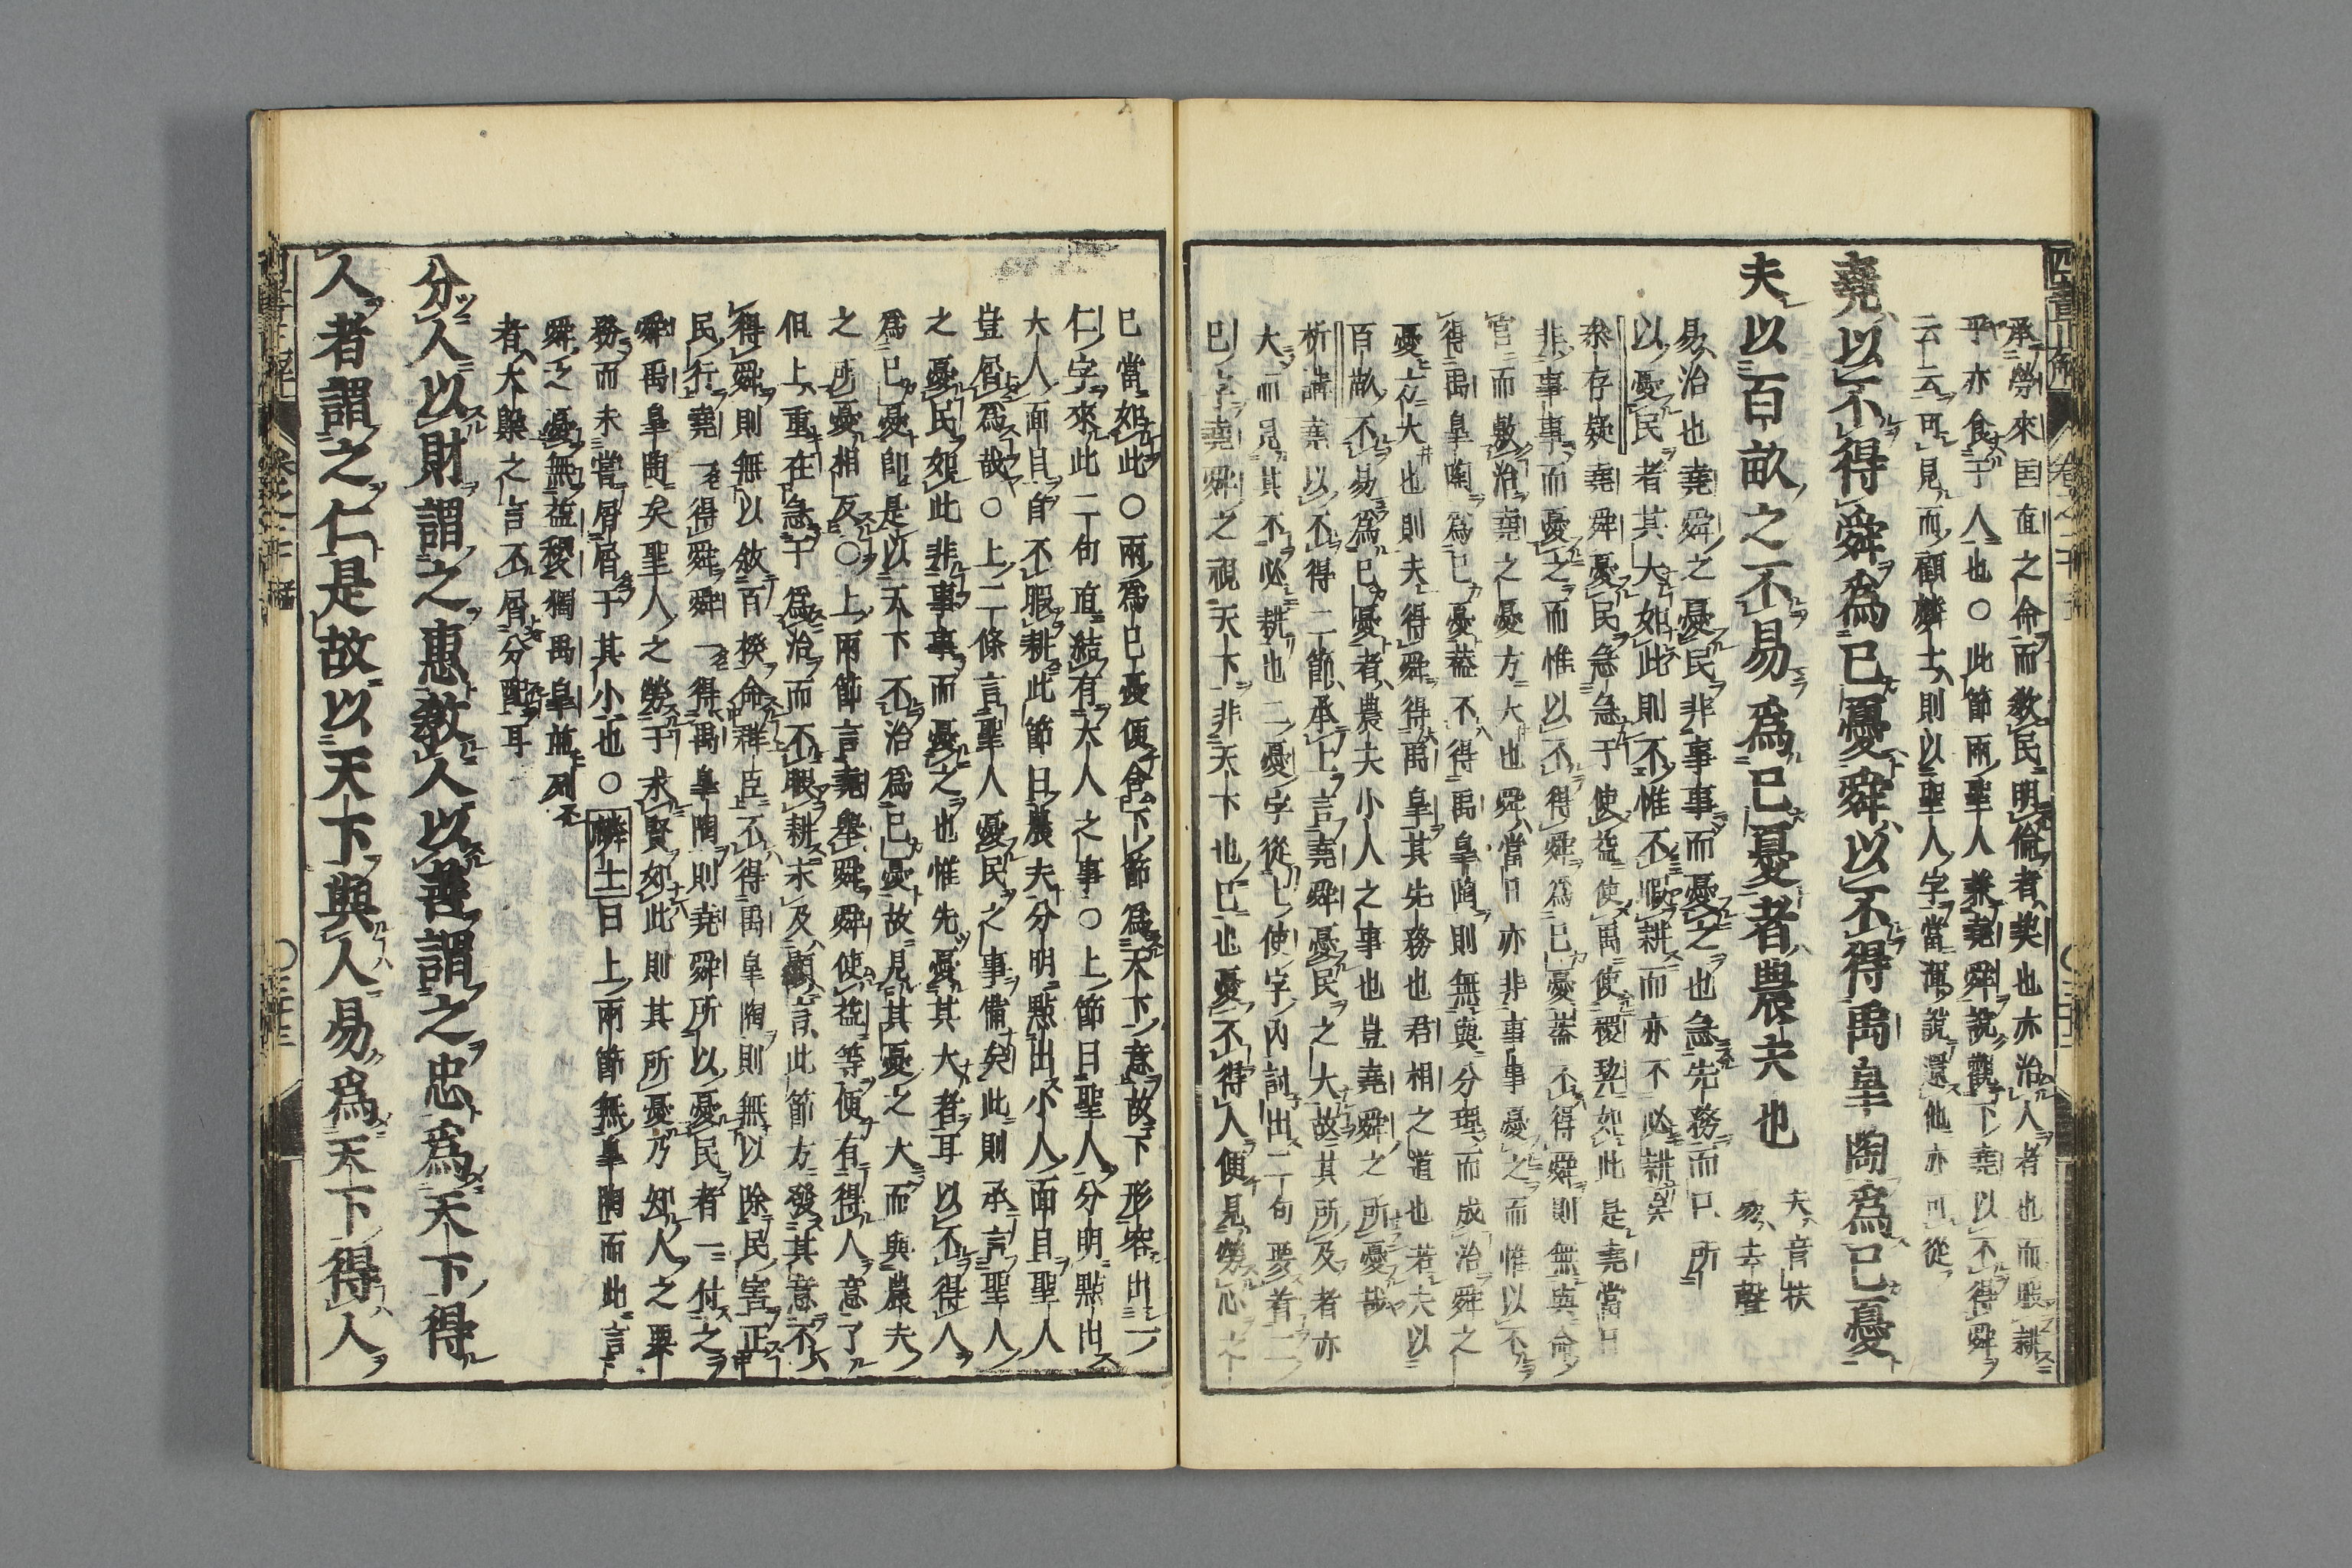 承勞來匡直之命而敎民明倫者契也亦治人者也而暇耕
乎亦食于人也○此節兩聖人兼堯舜說觀下堯以不得舜
云云可見而顧麟士則以聖人字當渾說還他亦可從
堯以不得舜爲己憂舜以不得禹皐陶爲己憂
夫以百畝之不易爲己憂者農夫也
夫音扶
易去聲
易治也堯舜之憂民非事事而憂之也急先務而已所
以憂民者其大如此則不惟不暇耕而亦不必耕矣
存疑堯舜憂民急急于使益使禹使稷契如此是堯當日
非事事而憂之而惟以不得舜爲己憂蓋不得舜則無與命
官而敷治堯之憂方大也舜當日亦非事事憂之而惟以不
得禹皐陶爲己憂蓋不得禹皐陶則無與分理而成治舜之
憂亦大也則夫得舜得禹皐其先務也君相之道也若夫以
百畝不易爲己憂者農夫小人之事也豈堯舜之所憂哉
析講業以不得二節承上言堯舜憂民之大故其所及者亦
大而見其不必耕也二憂字從上使字內討出二句要着二
己字堯舜之視天下非天下也己也憂不得人便見勞心
己當如此○兩爲己憂便含下節爲天下意故下形容出一
仁字來此二句直結有大人之事○上節曰聖人分明點出
大人面目自不暇耕此節曰農夫分明點出小人面目聖人
豈屑爲哉○上二條言聖人憂民之事備矣此則承言聖人
之憂民如此非事事而憂之也惟先憂其大者耳以不得人
爲己憂卽是以天下不治爲己憂故見其憂之大而與農夫
之所憂相反○上兩節言堯舉舜舜使益等便有得人意了
但上重在急于爲治而不暇耕求及顯言此節方發其意不
得舜則無以敘百揆命群臣不得禹皐陶則無以除民害正
民行堯一得舜舜一得禹皐陶則堯舜所以憂民者一付之
舜禹皐陶矣聖人之勞于求賢如此則其所憂乃知人之要
務而未嘗屑屑于其小也○麟士曰上兩節無皐陶而此言
舜之憂無益稷獨禹皐並列
者大槩之言不屑分配耳
分人以財謂之惠敎人以善謂之忠爲天下得
人者謂之仁是故以天下與人易爲天下得人